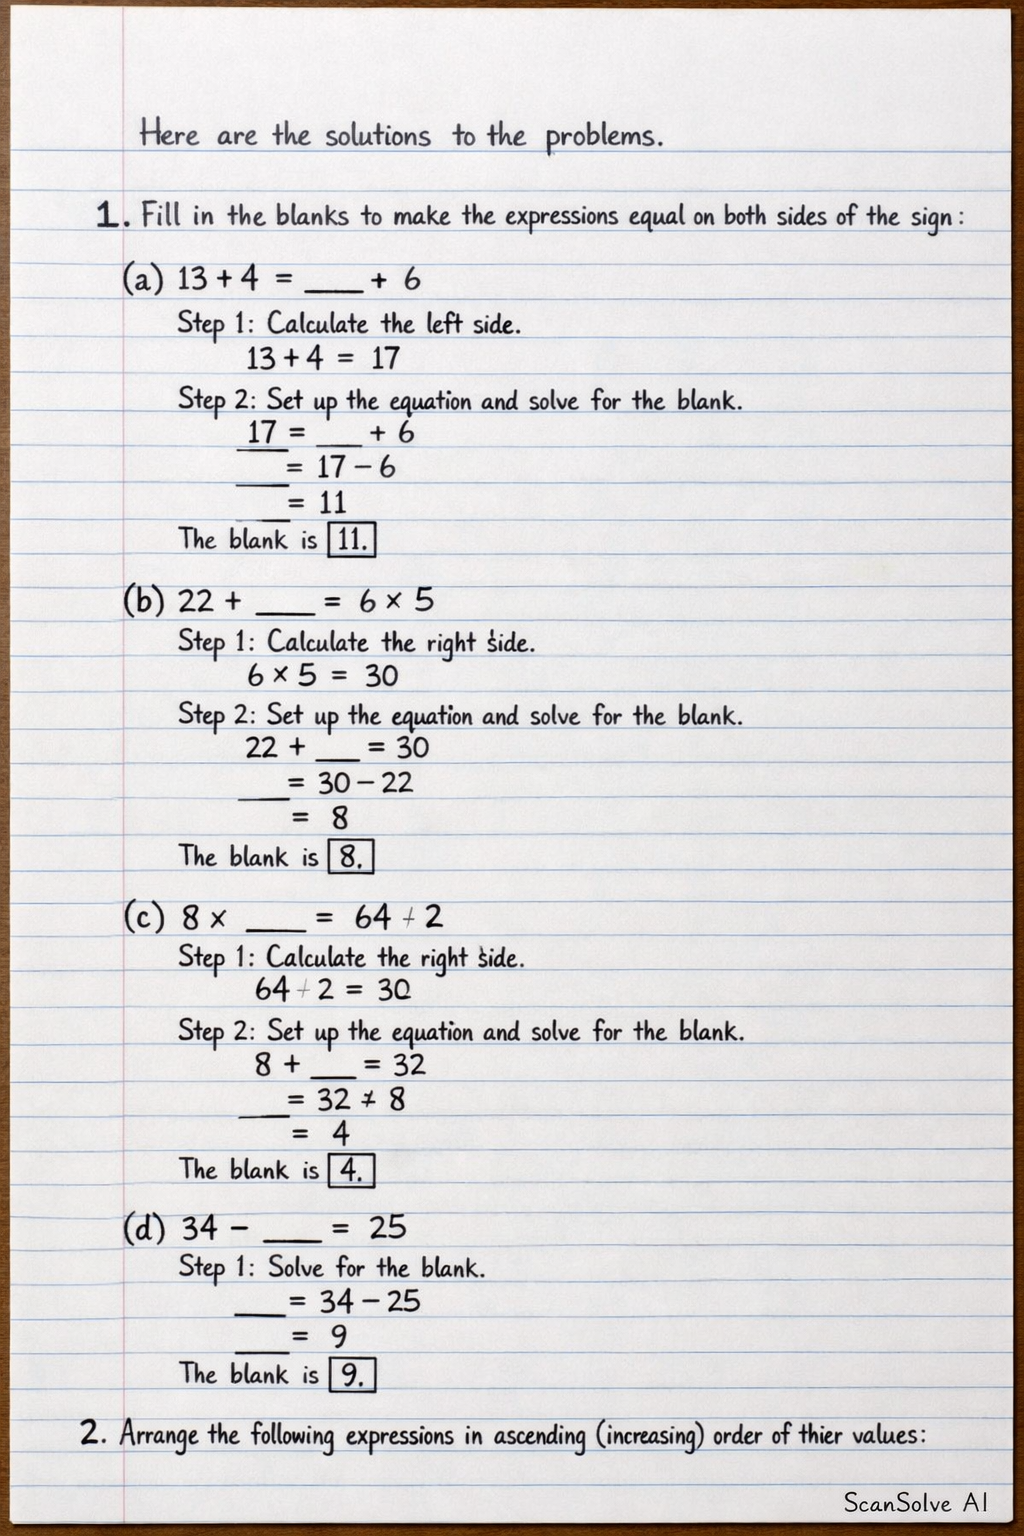 Here are the solutions to the problems.
1. Fill in the blanks to make the expressions equal on both sides of the sign:
(a) 13 + 4 = ___ + 6
Step 1: Calculate the left side.
13 + 4 = 17
Step 2: Set up the equation and solve for the blank.
17 = ___ + 6
___ = 17 - 6
___ = 11
The blank is 11.
(b) 22 + ___ = 6 × 5
Step 1: Calculate the right side.
6 × 5 = 30
Step 2: Set up the equation and solve for the blank.
22 + ___ = 30
___ = 30 - 22
= 8
The blank is 8.
(c) 8 × ___ = 64 ÷ 2
Step 1: Calculate the right side.
64 ÷ 2 = 30
Step 2: Set up the equation and solve for the blank.
8 + ___ = 32
___ = 32 ≠ 8
= 4
The blank is 4.
(d) 34 - ___ = 25
Step 1: Solve for the blank.
___ = 34 - 25
___ = 9
The blank is 9.
2. Arrange the following expressions in ascending (increasing) order of thier values:
ScanSolve AI